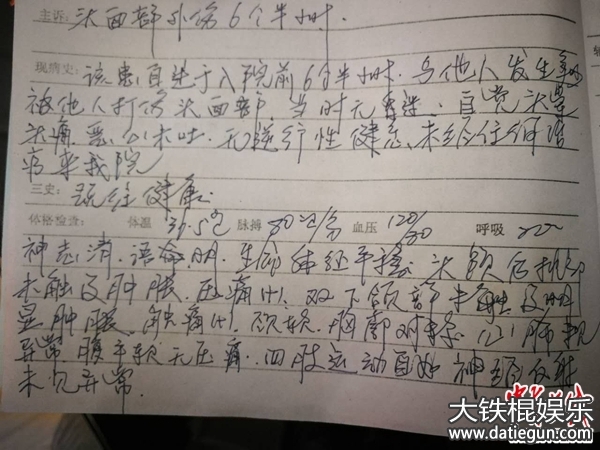 主诉: 头面部外伤6个半小时.
现病史: 该患自述于入院前6个半小时.与他人发生
被他人打伤头面部 当时无昏迷. 自觉头晕
头痛.恶心未吐.无逆行性健忘.未经任何治
疗来我院
三史: 既往健康.
体格检查: 体温 36.5℃ 脉搏 80次/分 血压 120/80 呼吸
神志清.语 明.生命体征平稳. 头 部
未触及肿胀.压痛(+).双下颌部未触及明
显肿胀.触痛(+).颈软.胸廓对称.心肺
异常 腹平软无压痛.四肢运动自如 神经
未见异常.
大铁棍娱乐
www.datiegun.com